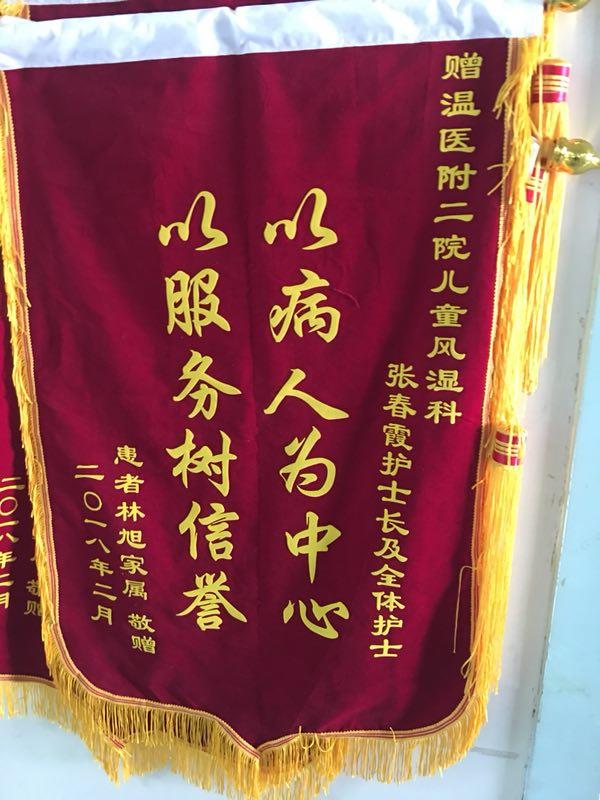 赠温医附二院儿童风湿科
张春霞护士长及全体护士
以病人为中心
以服务树信誉
患者林旭家属 敬赠
二〇一八年二月
敬赠
二〇一八年二月